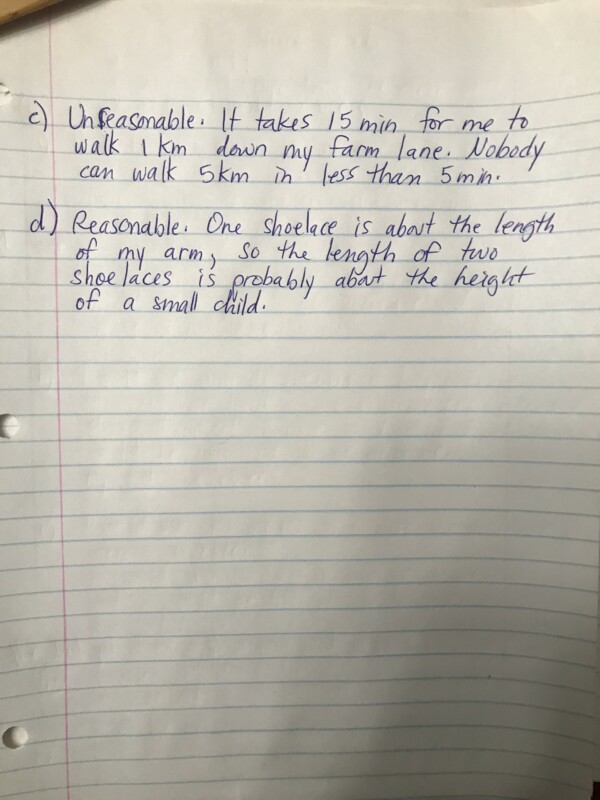 c) Unreasonable. It takes 15 min for me to
walk 1 km down my farm lane. Nobody
can walk 5km in less than 5min.
d) Reasonable. One shoelace is about the length
of my arm, so the length of two
shoelaces is probably about the height
of a small child.